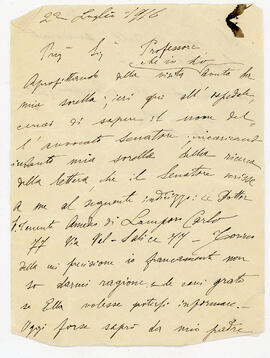 22 Luglio 1916
Preg. Sig. Professore
che io ho
Approfittando della visita avuta da
mia sorella, ieri qui all'ospedale
cercai di sapere il nome del
l'avvocato Senatore incaricand
mia sorella della ricerca
della lettera, che il Senatore
a me al seguente indirizzo:
di Carlo
77 Via Salice 77 - Torino
della mi precisione io francamente non
so darmi ragione, e le sarei grato
se Ella volesse potersi informare.
Oggi forse saprò da mio padre